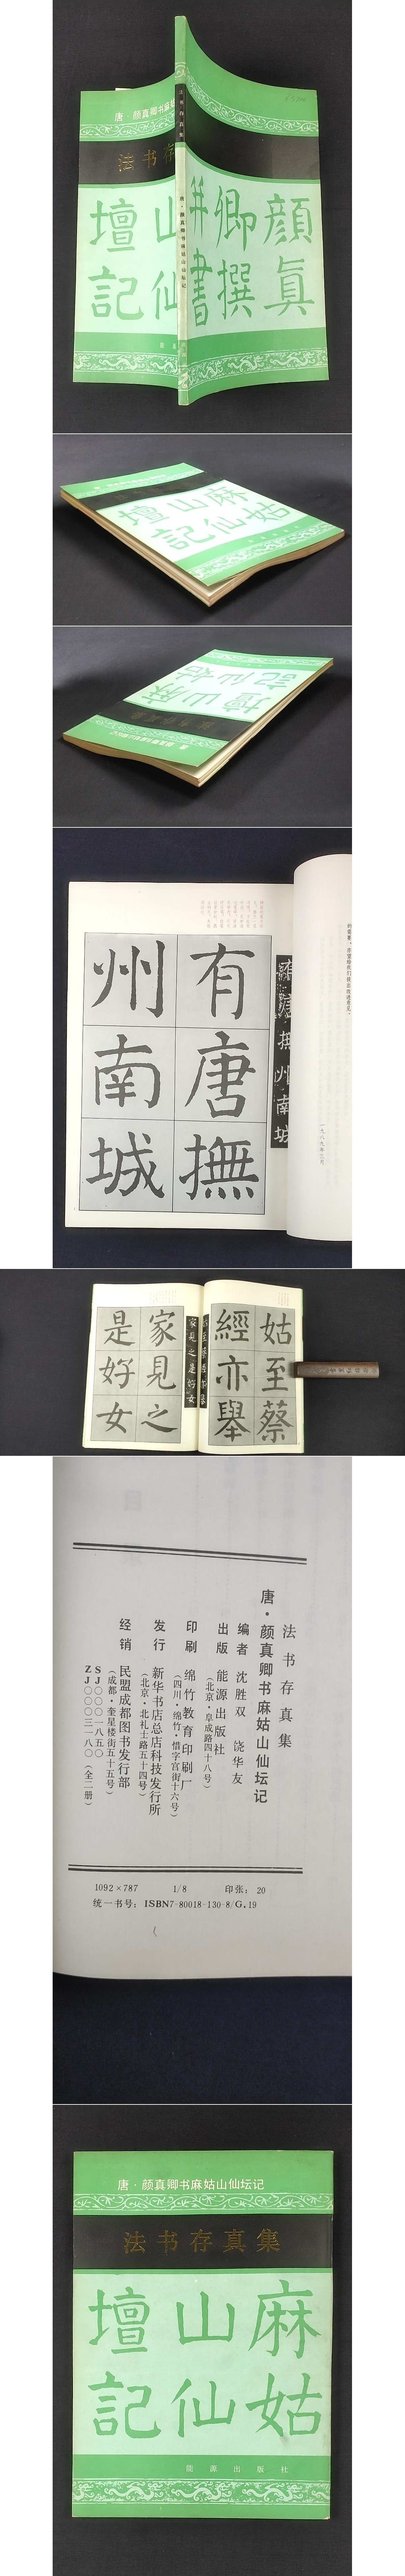 唐·颜真卿书麻姑
法书存
壇山
記仙
法书存真集
唐·颜真卿书麻姑山仙坛记
顔真
卿撰
并書
麻姑
山仙
壇記
麻姑
山仙
壇記
法书存真集
有唐撫
州南城
有唐撫州南城
一九八九年三月
姑至蔡
經亦舉
家見之
是好女
家見之是好女
法书存真集
唐·颜真卿书麻姑山仙坛记
编者 沈胜双 饶华友
出版 能源出版社
(北京·阜成路四十八号)
印刷 绵竹教育印刷厂
(四川·绵竹·惜字宫街十六号)
发行 新华书店总店科技发行所
(北京·北礼士路五十四号)
经销 民盟成都图书发行部
(成都·奎星楼街五十五号)
SJ〇〇〇一八五〇
ZJ〇〇〇三一八〇(全二册)
1092×787 1/8 印张: 20
统一书号: ISBN7-80018-130-8/G.19
唐·颜真卿书麻姑山仙坛记
法书存真集
麻姑
山仙
壇記
能源出版社